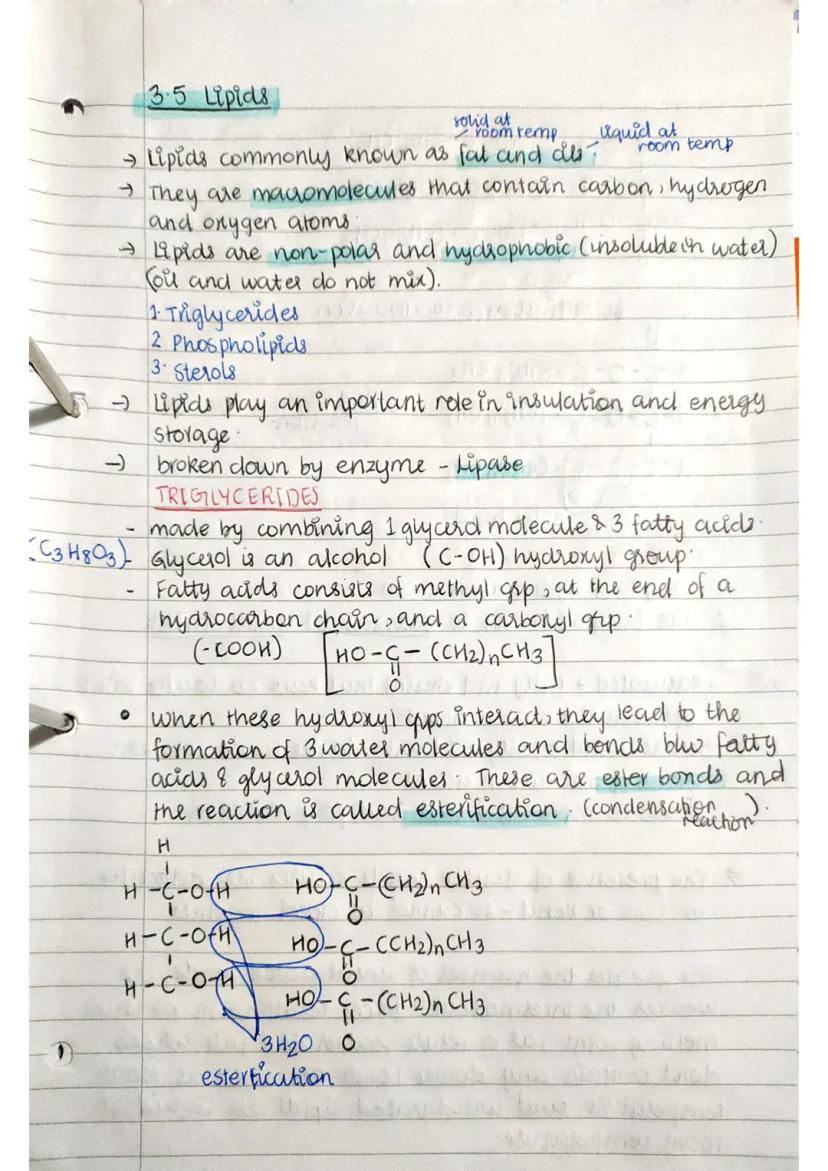 3.5 Lipids
solid at
room temp
liquid at
room temp
→ Lipids commonly known as fat and oils.
→ They are macromolecules that contain carbon, hydrogen
and oxygen atoms.
→ Lipids are non-polar and hydrophobic (insoluble in water)
(oil and water do not mix).
1. Triglycerides
2 Phospholipids
3. Sterols
→ Lipids play an important role in insulation and energy
storage.
→ broken down by enzyme - Lipase
TRIGLYCERIDES
- made by combining 1 glycerol molecule & 3 fatty acids.
(C3H8O3) - Glycerol is an alcohol (C-OH) hydroxyl group.
- Fatty acids consists of methyl grp, at the end of a
hydrocarbon chain, and a carbonyl grp.
(-COOH) [HO-C-(CH2)nCH3]
O
• when these hydroxyl grps interact, they lead to the
formation of 3 water molecules and bonds b/w fatty
acids & glycerol molecules. These are ester bonds and
the reaction is called esterification. (condensation
reaction).
H
H-C-O-H HO-C-(CH2)nCH3
O
H-C-O-H HO-C-(CH2)nCH3
O
H-C-O-H HO-C-(CH2)nCH3
3H2O O
esterfication
1